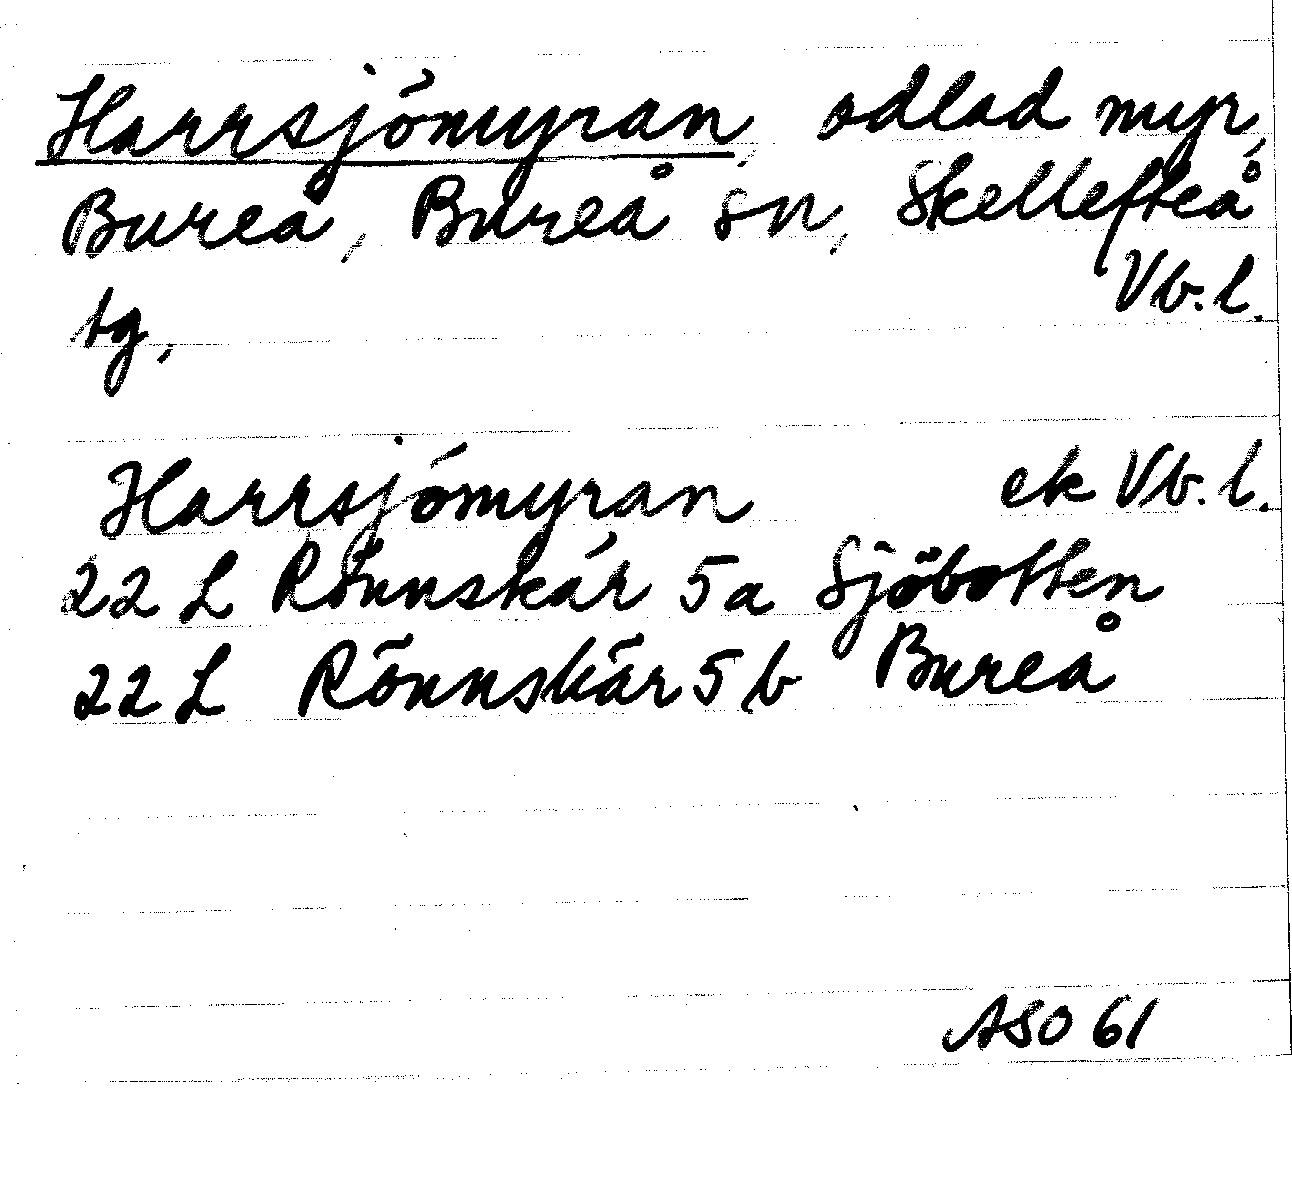 Harrsjömyran, odlad myr,
Bureå, Bureå sn, Skellefteå
tg, Vb. l.
Harrsjömyran ek Vb. l.
22 L Rönnskär 5a Sjöbotten
22 L Rönnskär 5 b Bureå
ASO 61